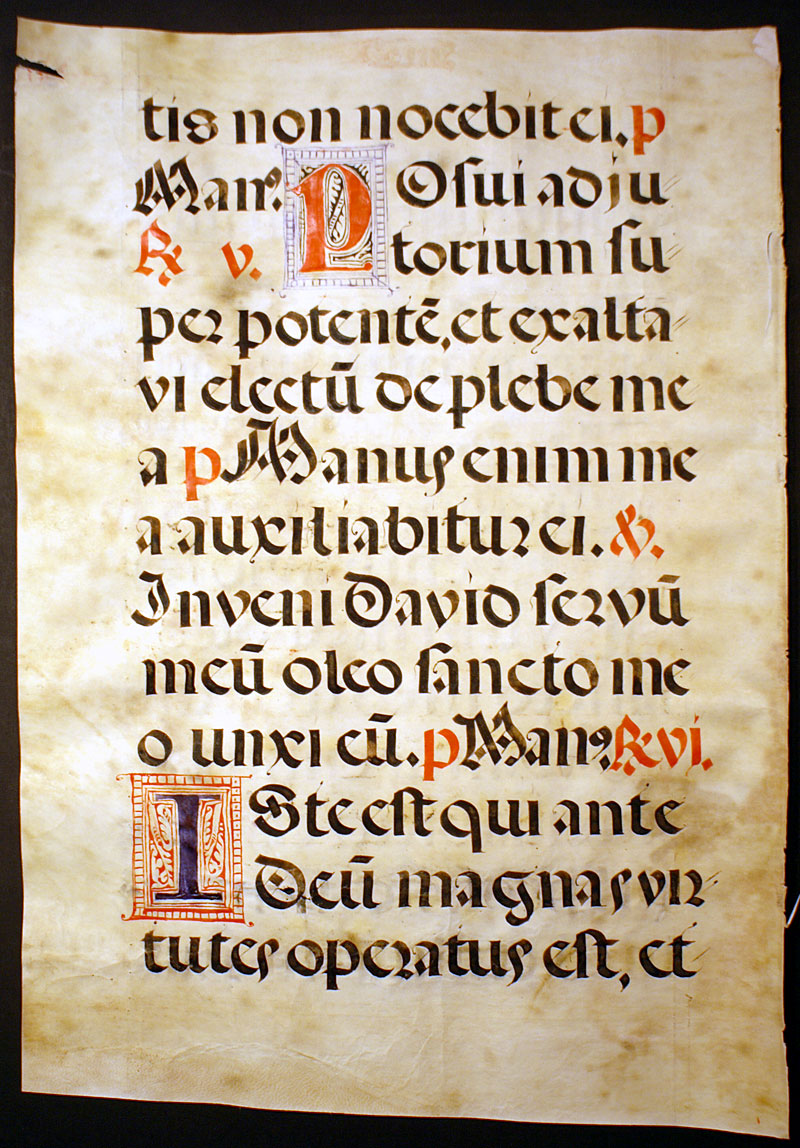 tis non nocebit ei. p
Man⁹. POsui adju
℟ v. torium su
per potentē, et exalta
vi electū de plebe me
a p Manus enim me
a auxiliabitur ei. ℣.
Inveni David servū
meū oleo sancto me
o unxi eū. p Man⁹. ℟ vi.
ISte est qui ante
Deū magnas vir
tutes operatus est, et